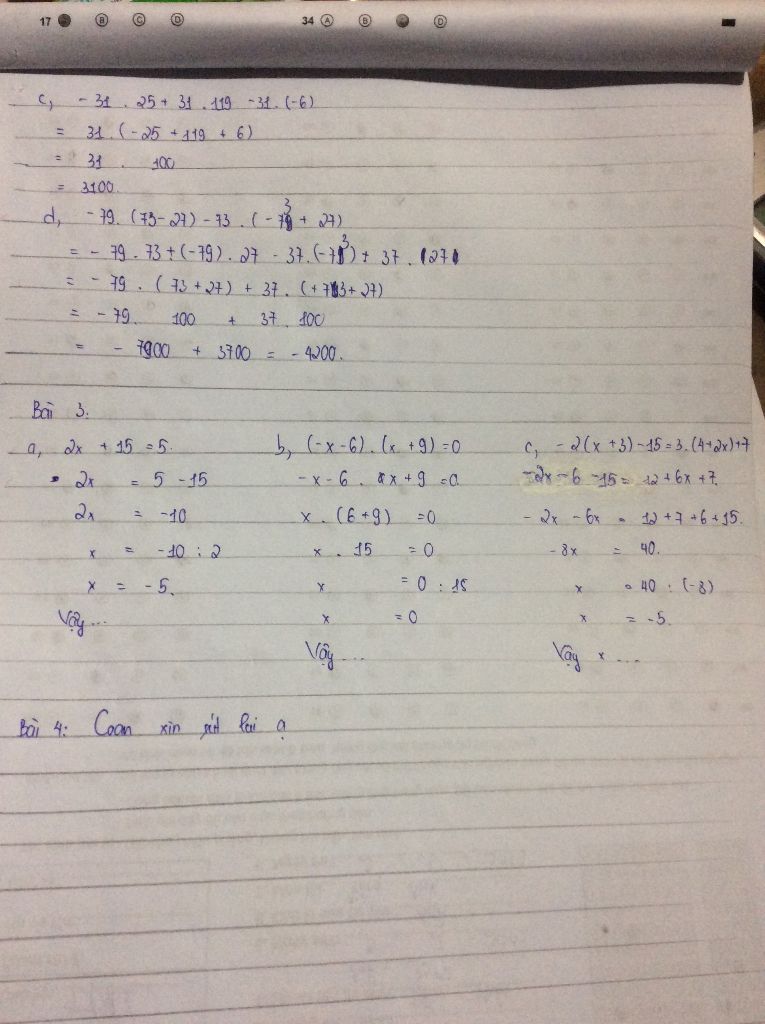 17 Ⓑ Ⓒ Ⓓ 34 Ⓐ Ⓑ Ⓓ
c, - 31 . 25 + 31 . 119 - 31 . (-6)
= 31 . (-25 + 119 + 6)
= 31 . 100
= 3100.
d, -79 . (73 - 27) - 73 . (-73 + 27)
= - 79 . 73 + (-79) . 27 - 37 . (-73) + 37 . 27
= - 79 . (73 + 27) + 37 . (+73 + 27)
= - 79 . 100 + 37 . 100
= - 7900 + 3700 = - 4200.
Bài 3:
a, 2x + 15 = 5.
2x = 5 - 15
2x = -10
x = -10 : 2
x = -5.
Vậy...
b, (-x - 6) . (x + 9) = 0
- x - 6 . x + 9 = 0
x . (6 + 9) = 0
x . 15 = 0
x = 0 : 15
x = 0
Vậy ...
c, - 2(x + 3) - 15 = 3 . (4 + 2x) + 7
-2x - 6 - 15 = 12 + 6x + 7.
- 2x - 6x = 12 + 7 + 6 + 15.
- 8x = 40.
x = 40 : (-8)
x = -5.
Vậy x ...
Bài 4: Coan xin lại ạ